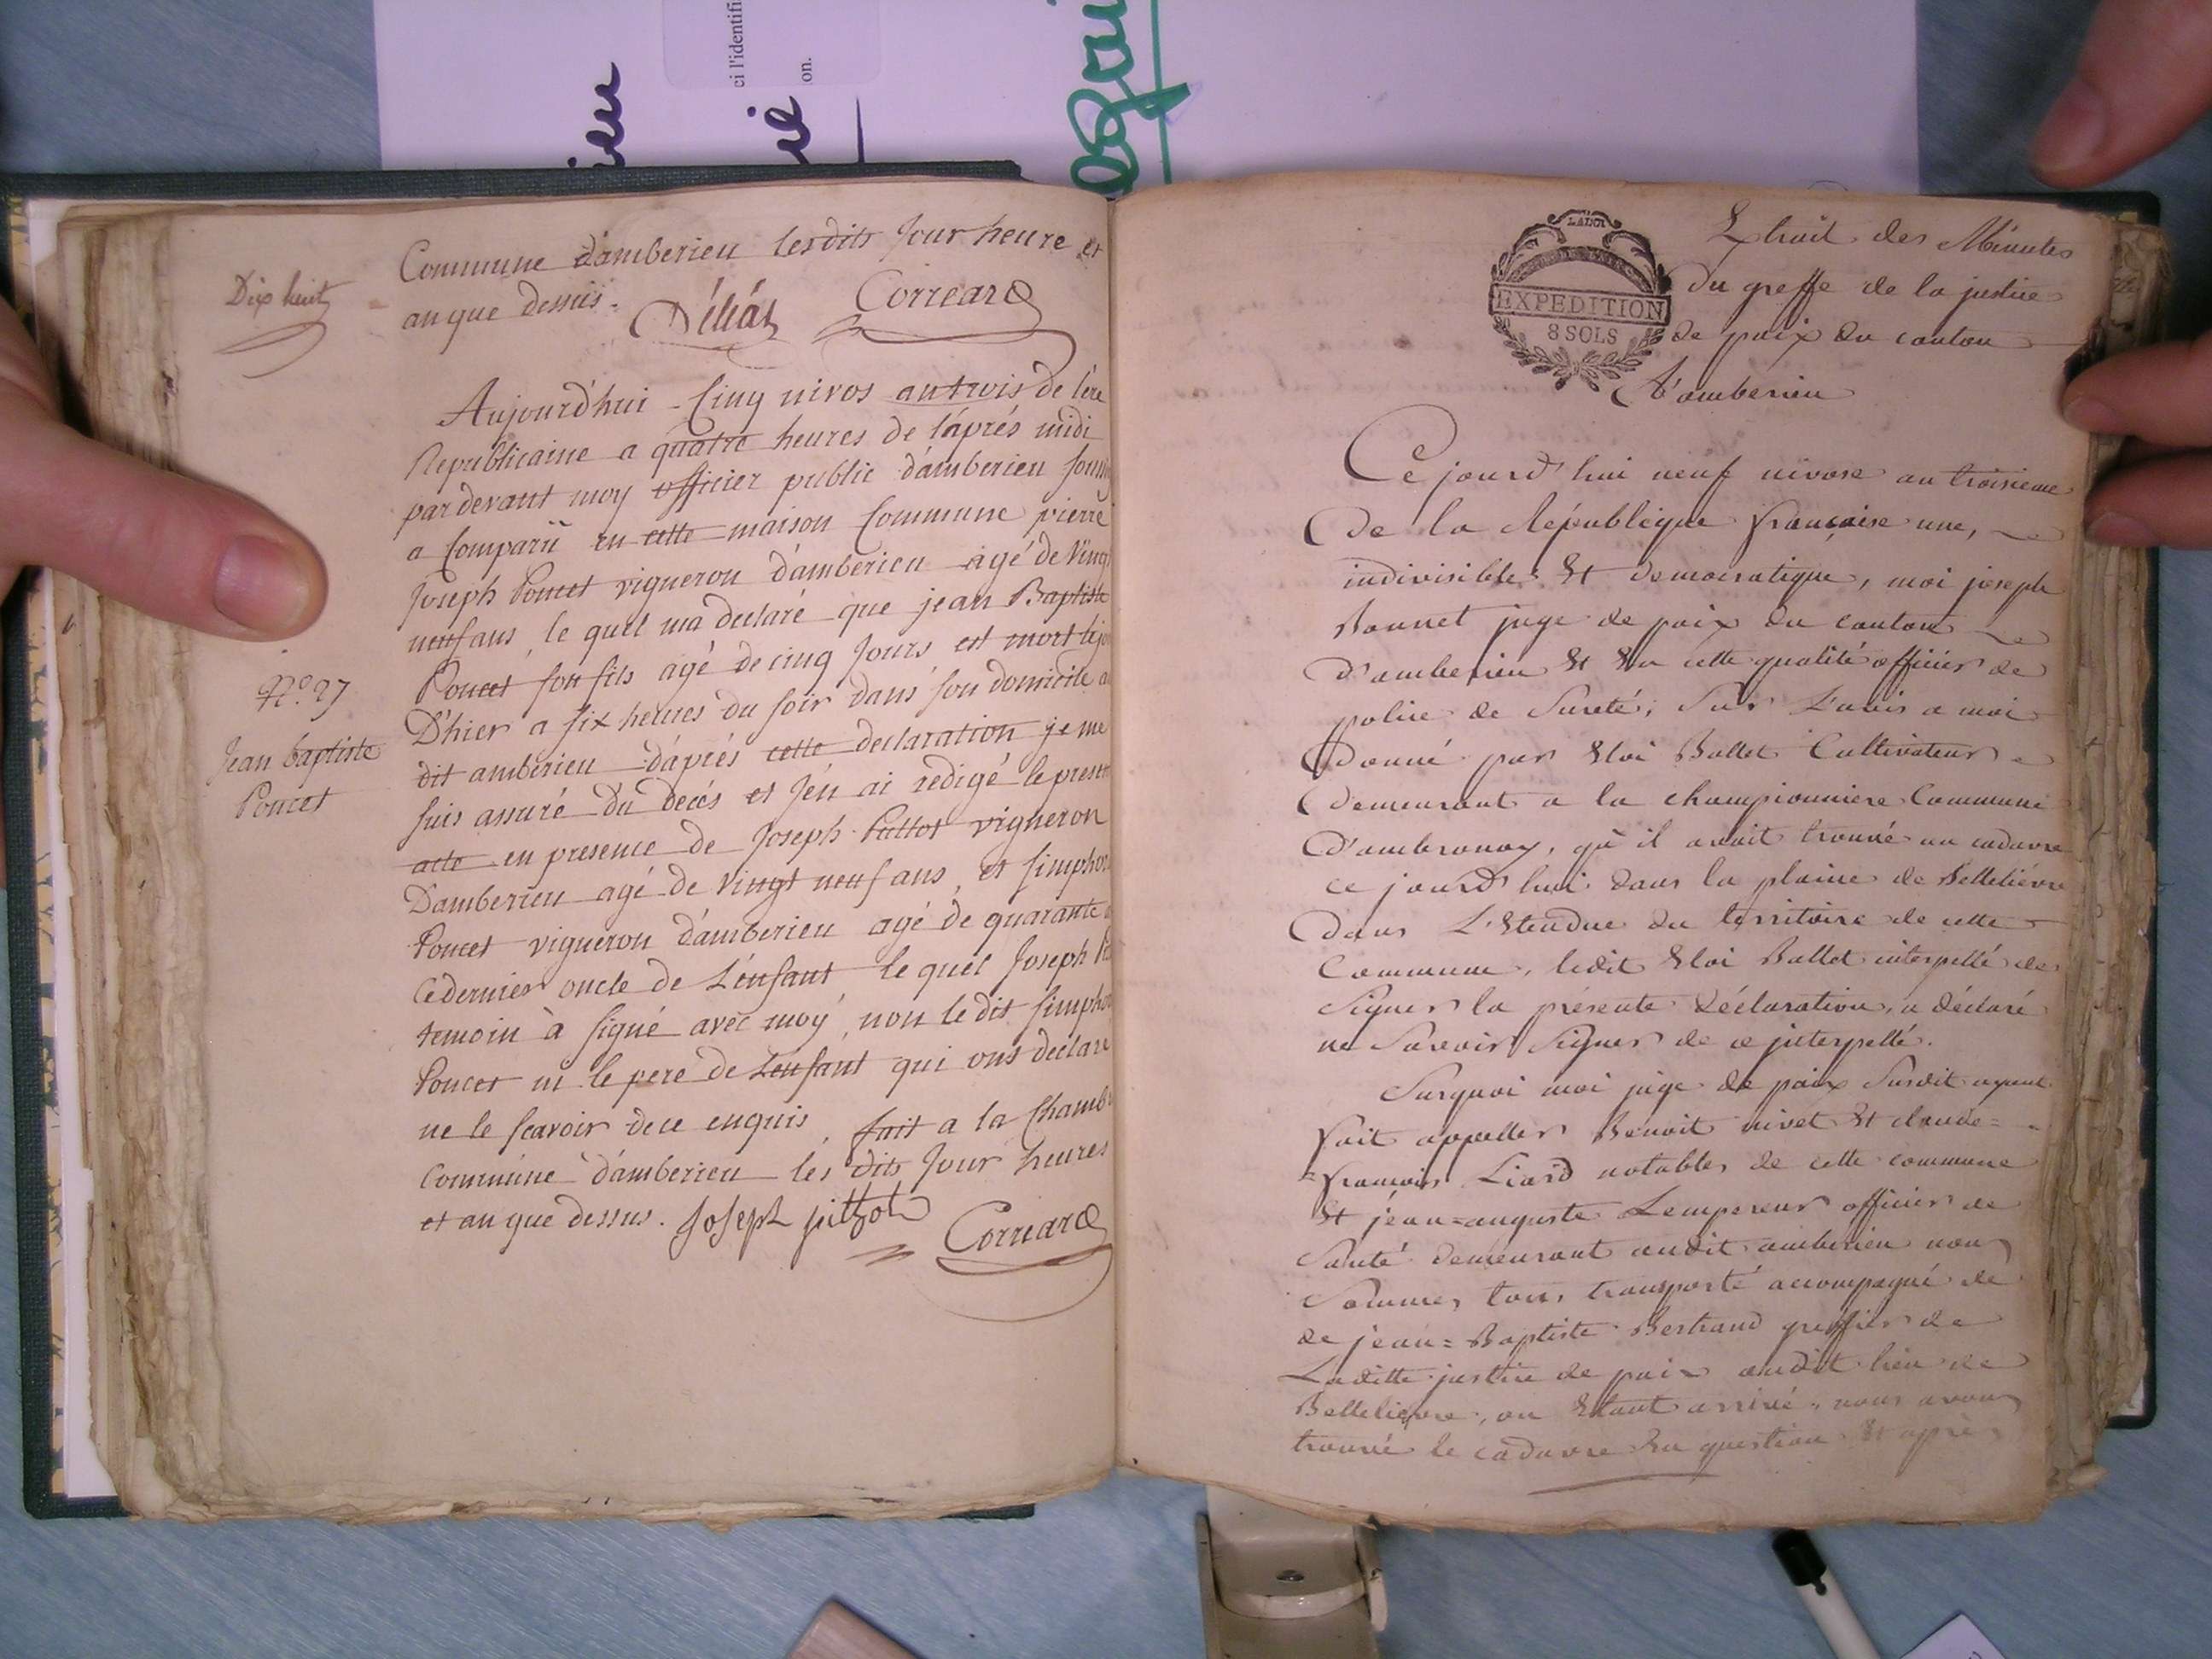 ci l'identifi
on.
Dix huit
Commune d'amberieu lesdits Jour heure et
an que dessus.
Corréard
Aujourd'hui Cinq nivos an trois de l'ere
Republicaine a quatre heures de l'aprés midi
par devant moy officier public d'amberieu
a Comparü en cette maison Commune pierre
Joseph Poncet vigneron d'amberieu agé de Vingt
neuf ans, le quel ma declaré que jean Baptiste
Poncet son fils agé de cinq Jours est mort le jou
D'hier a six heures du soir dans son domicile a
dit amberieu d'aprés cette declaration je me
suis assuré du decés et J'en ai redigé le present
acte en presence de Joseph Pittot vigneron
D'amberieu agé de Vingt neuf ans, et simphor
Poncet vigneron d'amberieu agé de quarante a
Ce dernier oncle de L'enfant le quel Joseph
temoin à signé avec moy, non le dit simpho
Poncet ni le pere de L'enfant qui ons declaré
ne le scavoir de ce enquis, fait a la Chamb
Commune d'amberieu les dits Jour heures
et an que dessus. Joseph pittot
Corréard
N.o 27
Jean baptiste
Poncet
EXPEDITION
8 SOLS
Extrait des Minutes
du greffe de la justice
de paix du canton
d'amberieu
Ce jourd'hui neuf nivose an troisieme
de la République française une,
indivisible Et democratique, moi joseph
Bonnet juge de paix du canton
d'amberieu Et En cette qualité officier de
police de Sureté, Sur L'avis a moi
donné par Eloi Ballet Cultivateur
demeurant a la championniere Commune
d'ambronay, qu'il avoit trouvé un cadavre
ce jourd'hui dans la plaine de Bellelièvre
dans L'Etendue du territoire de cette
Commune, ledit Eloi Ballet interpellé de
Signer la présente déclaration, a déclaré
ne Savoir Signer de ce interpellé.
Surquoi moi juge de paix Susdit ayant
fait appeller Benoit nivet Et claude=
=francois Liard notables de cette commune
Et jean=auguste Lempereur officier de
Santé demeurant audit amberieu nous
Sommes tous transporté accompagné de
de jean=Baptiste Bertrand greffier de
Laditte justice de paix audit lieu de
Bellelievre, ou Etant arrivé, nous avons
trouvé le cadavre En question Et après